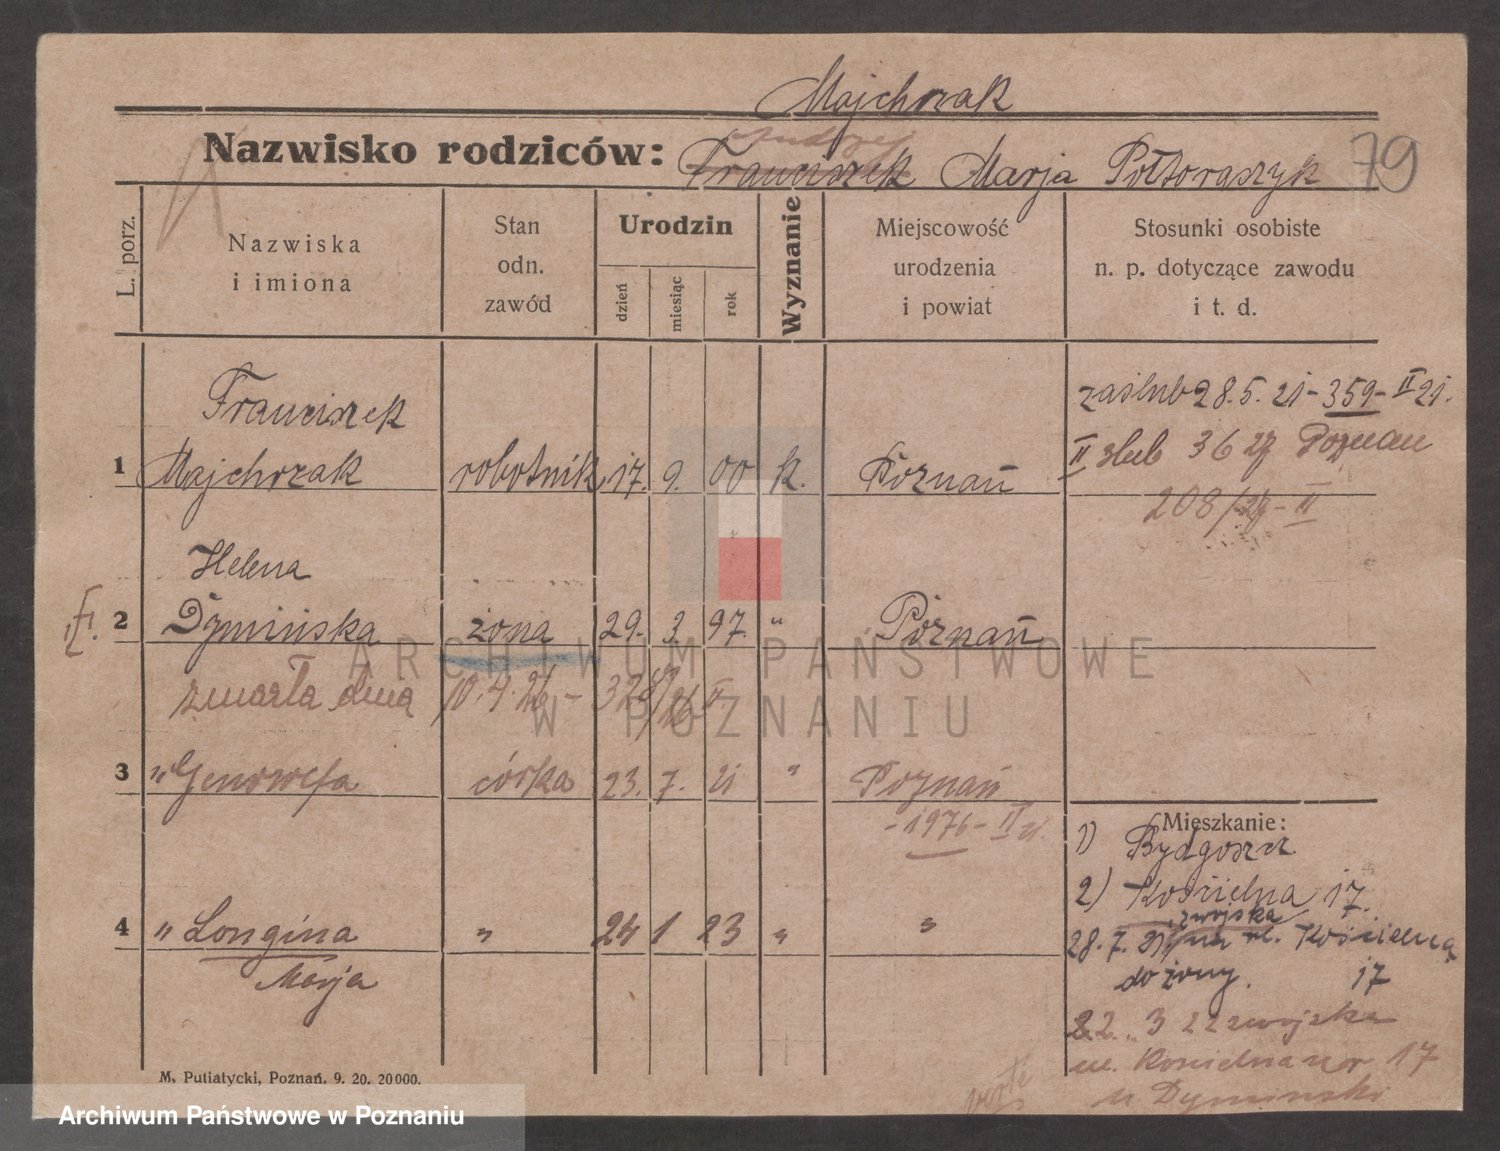 Majchrzak
Nazwisko rodziców: Franciszek Marja Półtoraszyk 79
Andrzej
L. porz.
Nazwiska
i imiona
Stan
odn.
zawód
Urodzin
dzień
miesiąc
rok
Wyznanie
Miejscowość
urodzenia
i powiat
Stosunki osobiste
n. p. dotyczące zawodu
i t. d.
Franciszek
1 Majchrzak robotnik 17. 9. 00 k. Poznań
zaślub 28. 5. 21 - 359 - II 21.
II ślub 3 6 27 Poznań
208/27 - II
Helena
2 Dymińska żona 29. 3. 97. " Poznań
zmarła dnia 10. 4. 26 - II
3 " Genowefa córka 23. 7. 21 " Poznań
- 1976 - II 21.
4 " Longina " 24 1 23 " "
Marja
Mieszkanie:
1) Bydgoszcz
2) Kościelna 17.
z wojska
28. 7. 21 na ul. Kościelną
do żony. 17
22. 3 22 z wojska
ul. Kościelna nr 17
u Dymiński
M. Putiatycki, Poznań. 9. 20. 20000.
ARCHIWUM PAŃSTWOWE
W POZNANIU
Archiwum Państwowe w Poznaniu